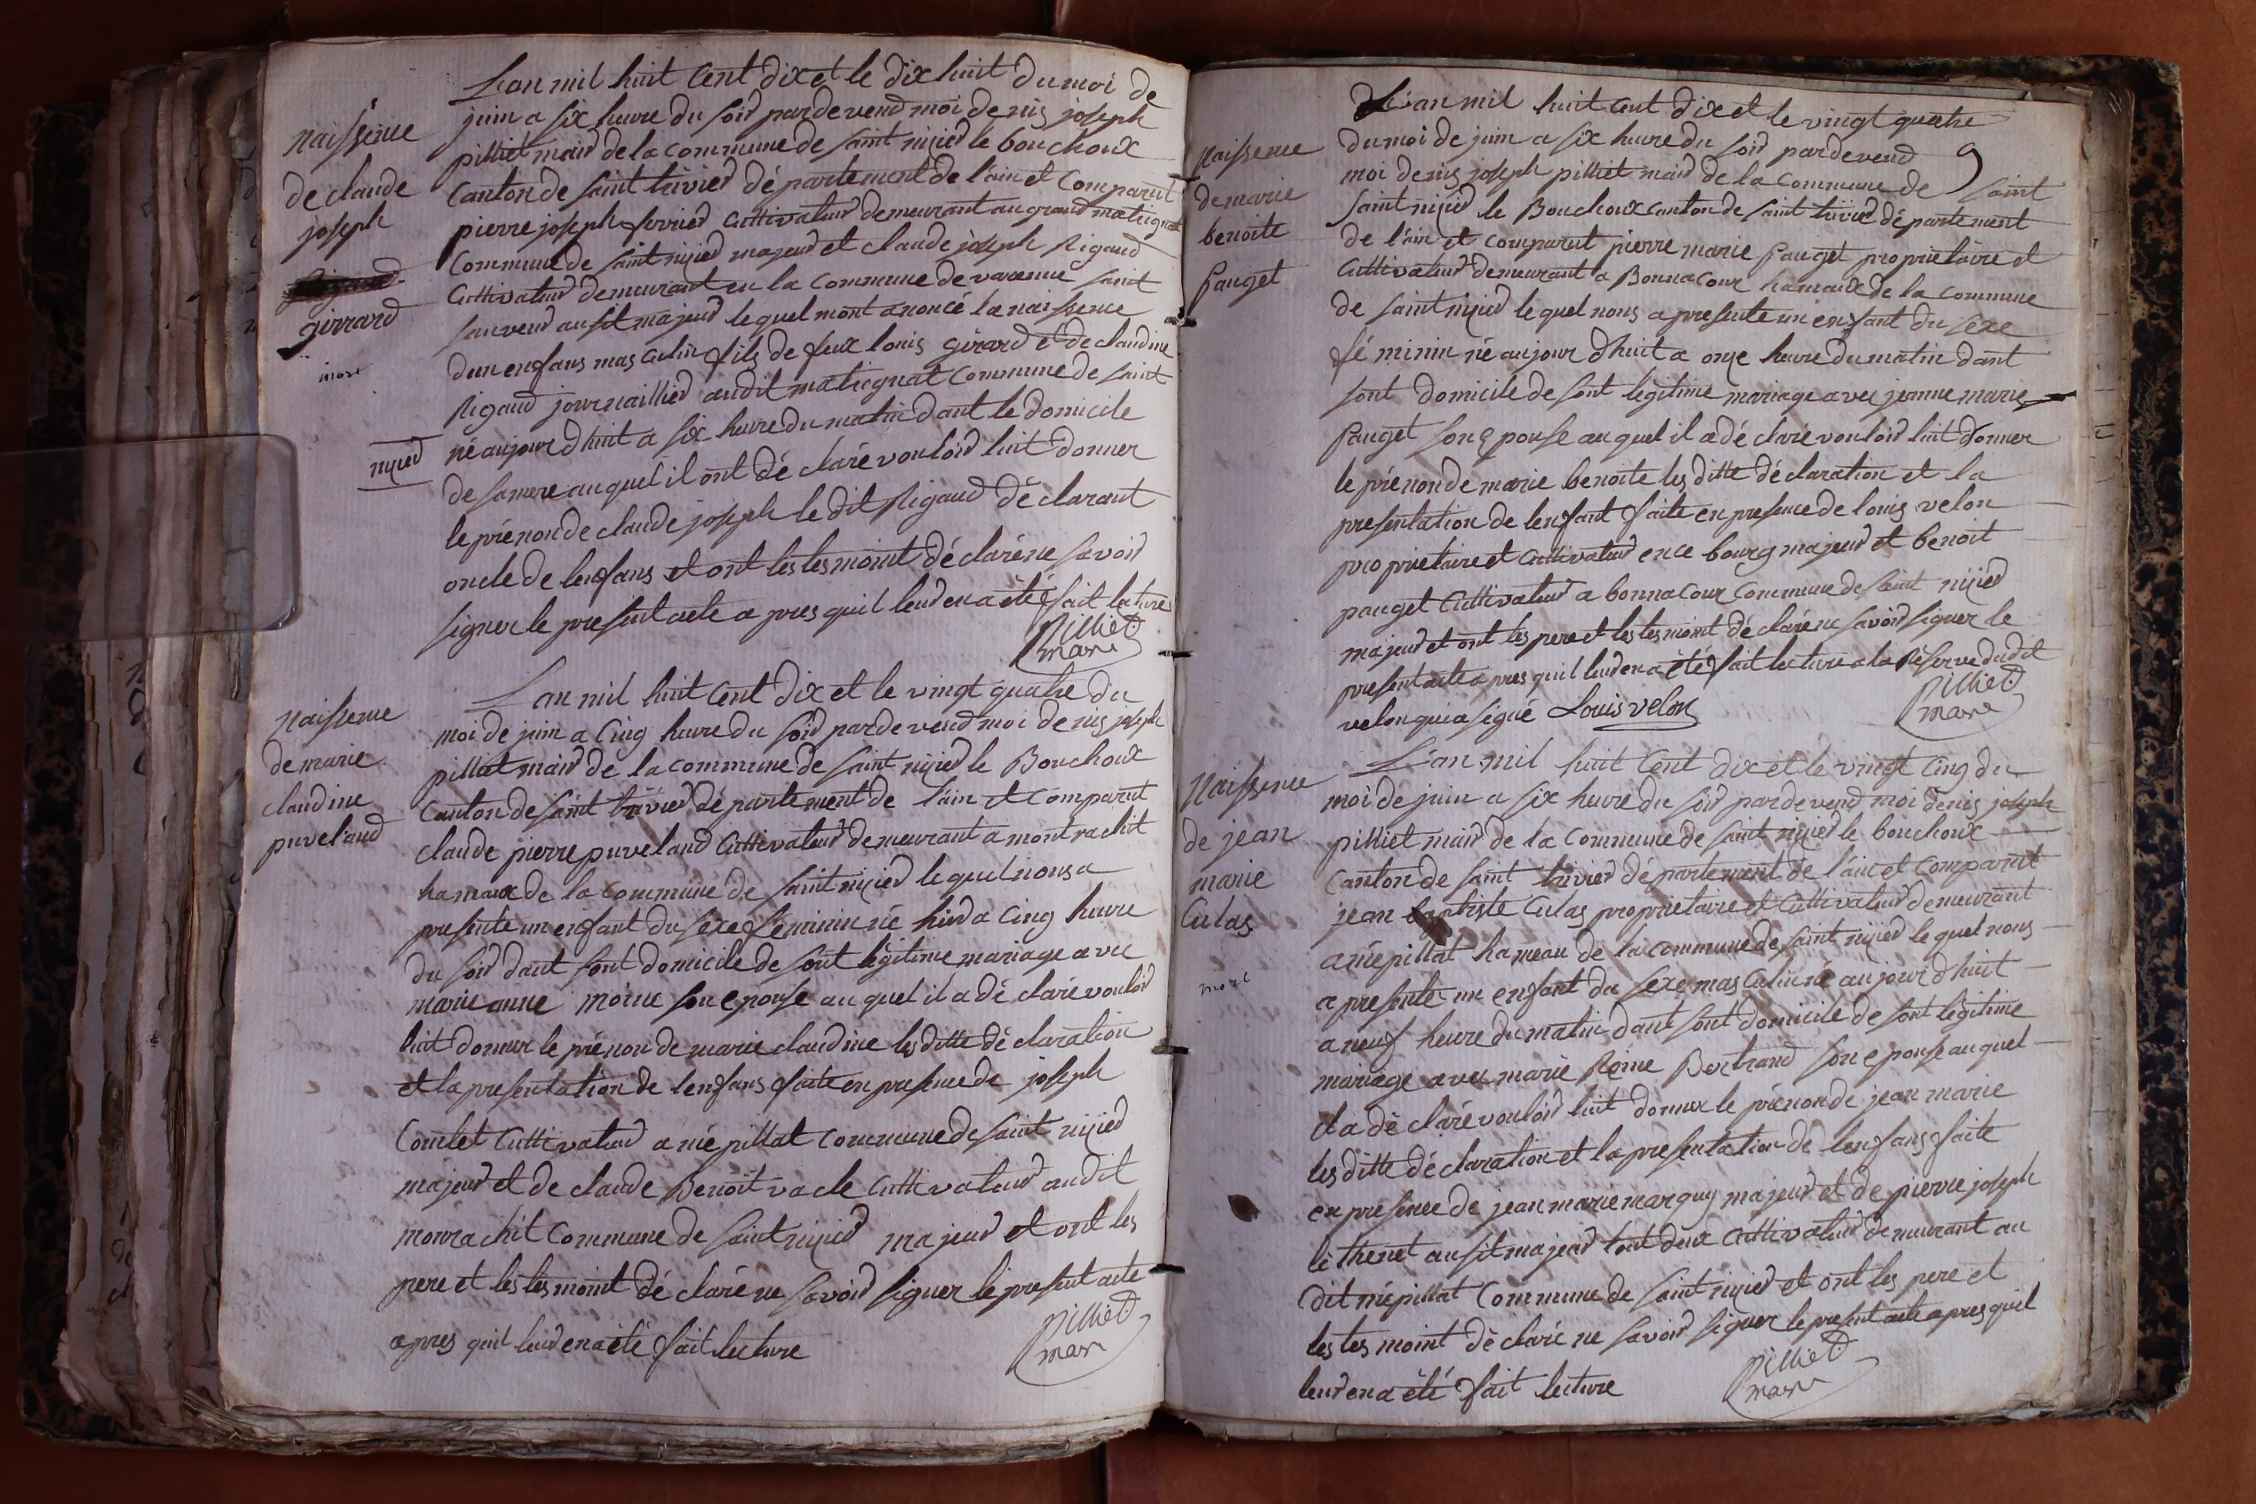 Lan mil huit Cent dix et le dix huit du moi de
juin a six heure du soir pardevend moi denis joseph
pilliet mair de la commune de saint nizier le bouchoux
Canton de saint trivier département de lain et Comparut
pierre joseph ferrier Cultivateur demeurant au grand matrignat
Commune de saint nizier majeur et claude joseph Rigaud
Cultivateur demeurant en la commune de varenne saint
sauveur ausit majeur lequel mont anoncé la naissence
dun enfans masculin fils de feux louis girard et de claudine
Rigaud journaillier audit matrignat Commune de saint
nizier
né aujour dhuit a six heure du matin dant le domicile
de sa mere auquel il ont déclaré vouloir luit donner
le prénon de claude joseph le dit Rigaud déclarant
oncle de lenfans et ont les tesmoint déclaré ne savoir
signer le present acte apres quil leur en a été fait lecture
pilliet
mare
naissence
de claude
joseph
girrard
mort
Lan mil huit Cent dix et le vingt quatre du
moi de juin a Cinq heure du soir pardevend moi denis joseph
pilliet mair de la commune de saint nizier le Bouchoux
Canton de saint trivier département de l'ain et Comparut
claude pierre puveland Cultivateur demeurant a montrachit
hamaux de la commune de saint nizier lequel nous a
presente un enfant du sexe féminin né hier a Cinq heure
du soir dant sont domicile de sont légitime mariage avec
marie anne moine son epouse auquel il a déclaré vouloir
luit donner le prénon de marie claudine les ditte déclaration
et la presentation de lenfans faite en presence de joseph
Comlet Cultivateur a mépillat commune de saint nizier
majeur et de claude Benoit vacle Cultivateur audit
monrachit Commune de saint nizier majeur et ont les
pere et les tesmoint déclaré ne savoir signer le present acte
apres quil leur en a été fait lecture
pilliet
mare
naissence
de marie
claudine
puveland
L'an mil huit cent dix et le vingt quatre
du moi de juin a six heure du soir pardevend 9
moi denis joseph pilliet mair de la commune de saint
saint nizier le Bouchoux canton de saint trivier département
de l'ain et comparut pierre marie pauget proprietaire et
Cultivateur demeurant a Bonnacour hamaux de la commune
de saint nizier lequel nous a presente un enfant du sexe
féminin né aujour dhuit a onze heure du matin dant
sont domicile de sont legitime mariage avec jeanne marie
pauget son epouse auquel il a déclaré vouloir luit donner
le prénon de marie benoite les ditte déclaration et la
presentation de lenfant faite en presence de louis velon
proprietaire et cultivateur en ce bourg majeur et benoit
pauget Cultivateur a bonnacour commune de saint nizier
majeur et ont les pere et les tesmoint déclaré ne savoir signer le
present acte apres quil leur en a été fait lecture a la Réserve dudit
velon qui a signé Louis velon
pilliet
mare
naissence
de marie
benoite
pauget
L'an mil huit Cent dix et le vingt Cinq du
moi de juin a six heure du soir pardevend moi denis joseph
pilliet mair de la Commune de saint nizier le bouchoux
Canton de saint trivier département de l'ain et Comparut
jean baptiste Culas proprietaire et Cultivateur demeurant
a mépillat hameau de la commune de saint nizier lequel nous
a presente un enfant du sexe masculin né aujour dhuit
a neuf heure du matin dant sont domicile de sont légitime
mariage avec marie Reine Bertrand son epouse auquel
il a déclaré vouloir luit donner le prénon de jean marie
les ditte déclaration et la presentation de lenfans faite
en présence de jean marie marguy majeur et de pierre joseph
lethenet ausit majeur tout deux Cultivateur demeurant au
dit mépillat Commune de saint nizier et ont les pere et
les tesmoint déclaré ne savoir signer le present acte apres quil
leur en a été fait lecture
pilliet
mare
Naissence
de jean
marie
Culas
mort